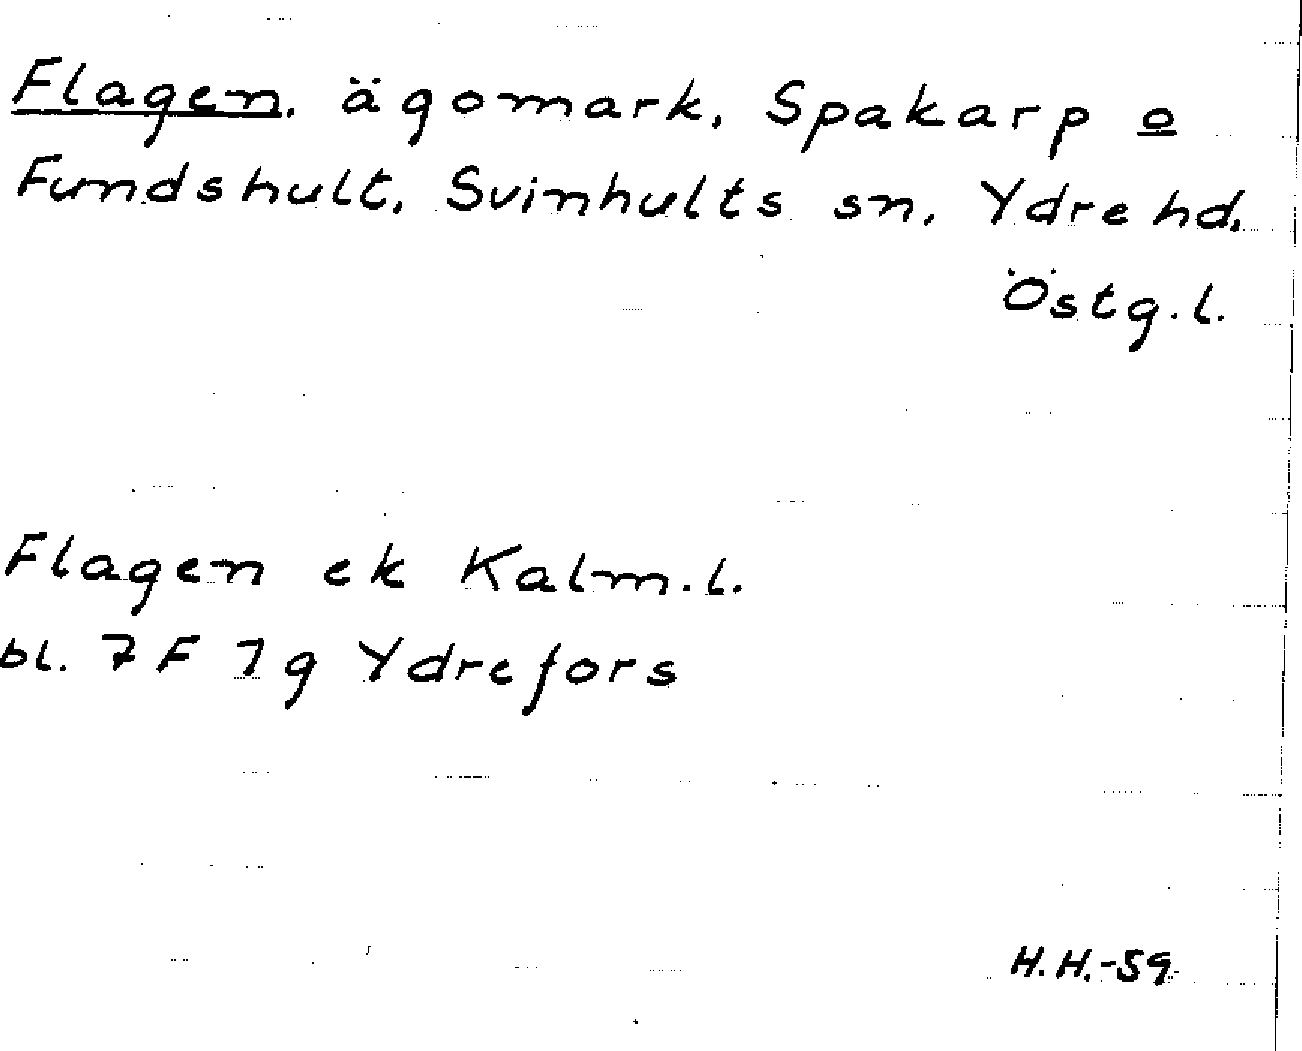 Flagen, ägomark, Spakarp o
Fundshult, Svinhults sn, Ydre hd,
Östg.l.
Flagen ek Kalm.l.
bl. 7F 7g Ydrefors
H.H.-59